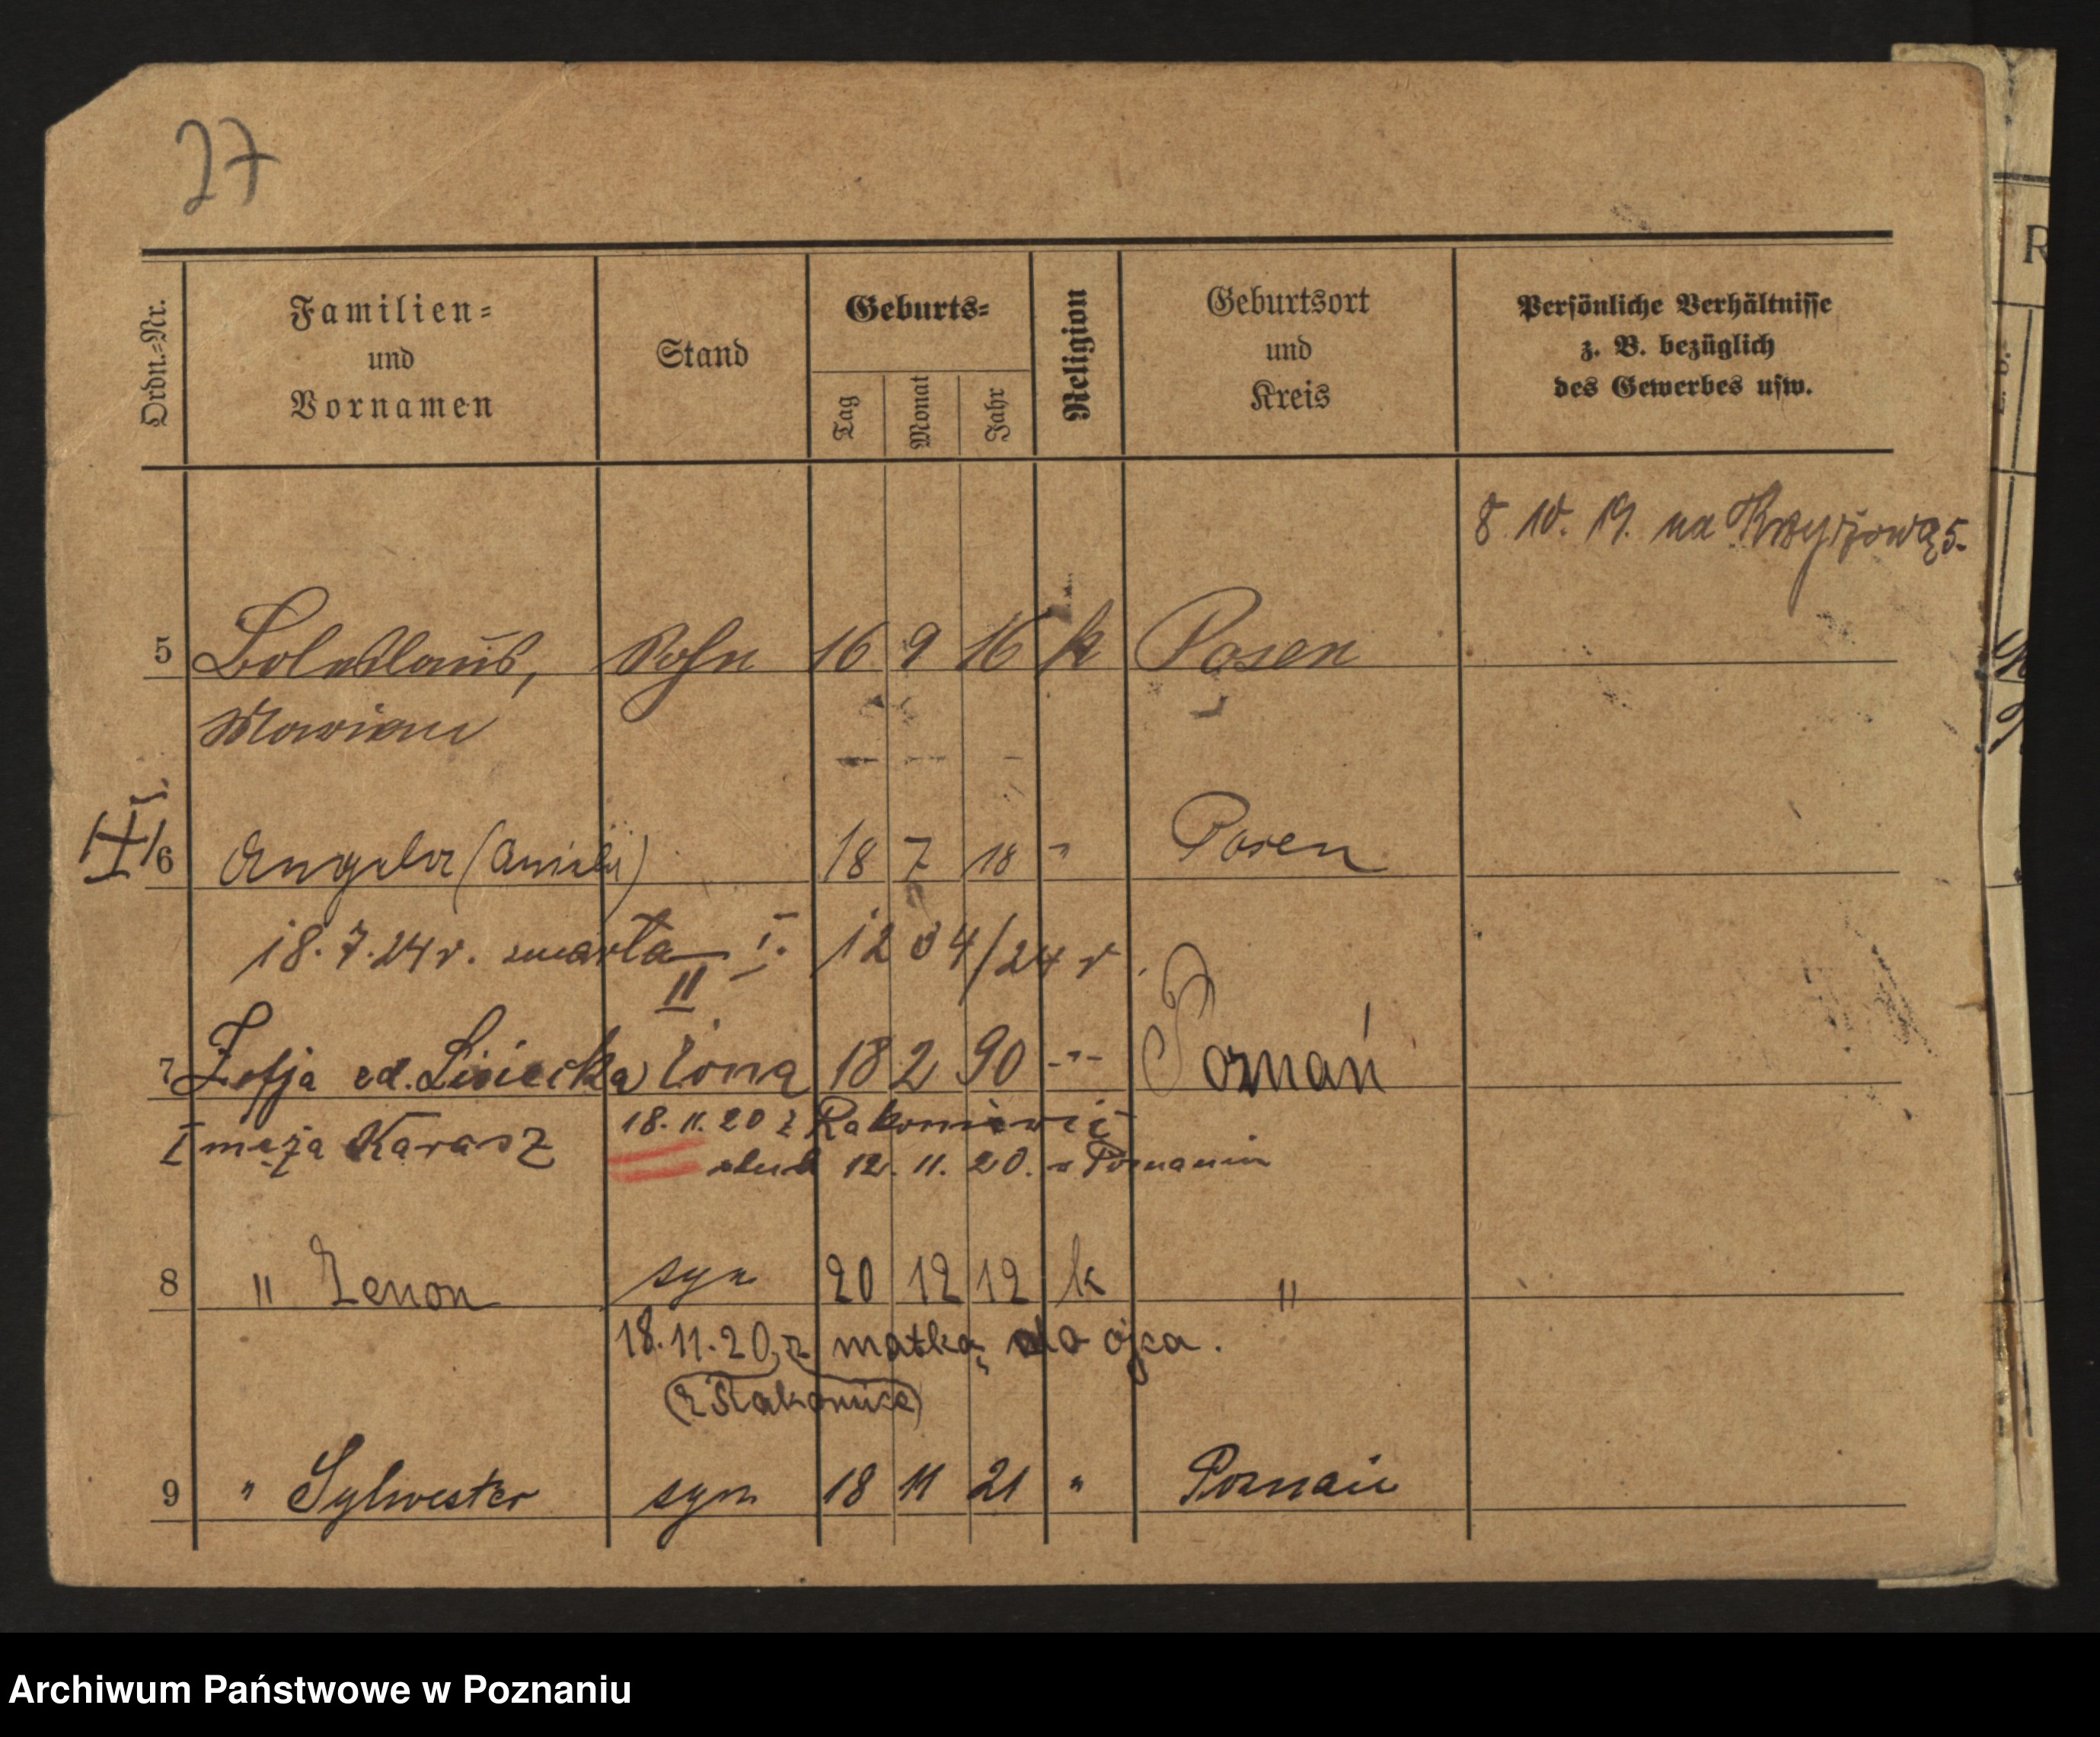 27
Ordn.-Nr.
Familien-
und
Vornamen
Stand
Geburts-
Tag
Monat
Jahr
Religion
Geburtsort
und
Kreis
Persönliche Verhältnisse
z. B. bezüglich
des Gewerbes usw.
R
8. 10. 19. na Krzyżową 5.
5 Boleslaus, Sohn 16 9 16 k Posen
Marian
6 Angela (Aniela) 18 7 18 " Posen
18. 7. 24 r. zmarła I. 12 04/24 r.
II
7 Zofja Lisiecka żona 18 2 90 -"- Poznań
I męża Karasz
18. 11. 20 z Rakoniewic
ślub 12. 11. 20. w Poznaniu
8 " Zenon syn 20 12 12 k "
18. 11. 20 z matką do ojca.
9 " Sylwester syn 18 11 21 " Poznań
Archiwum Państwowe w Poznaniu